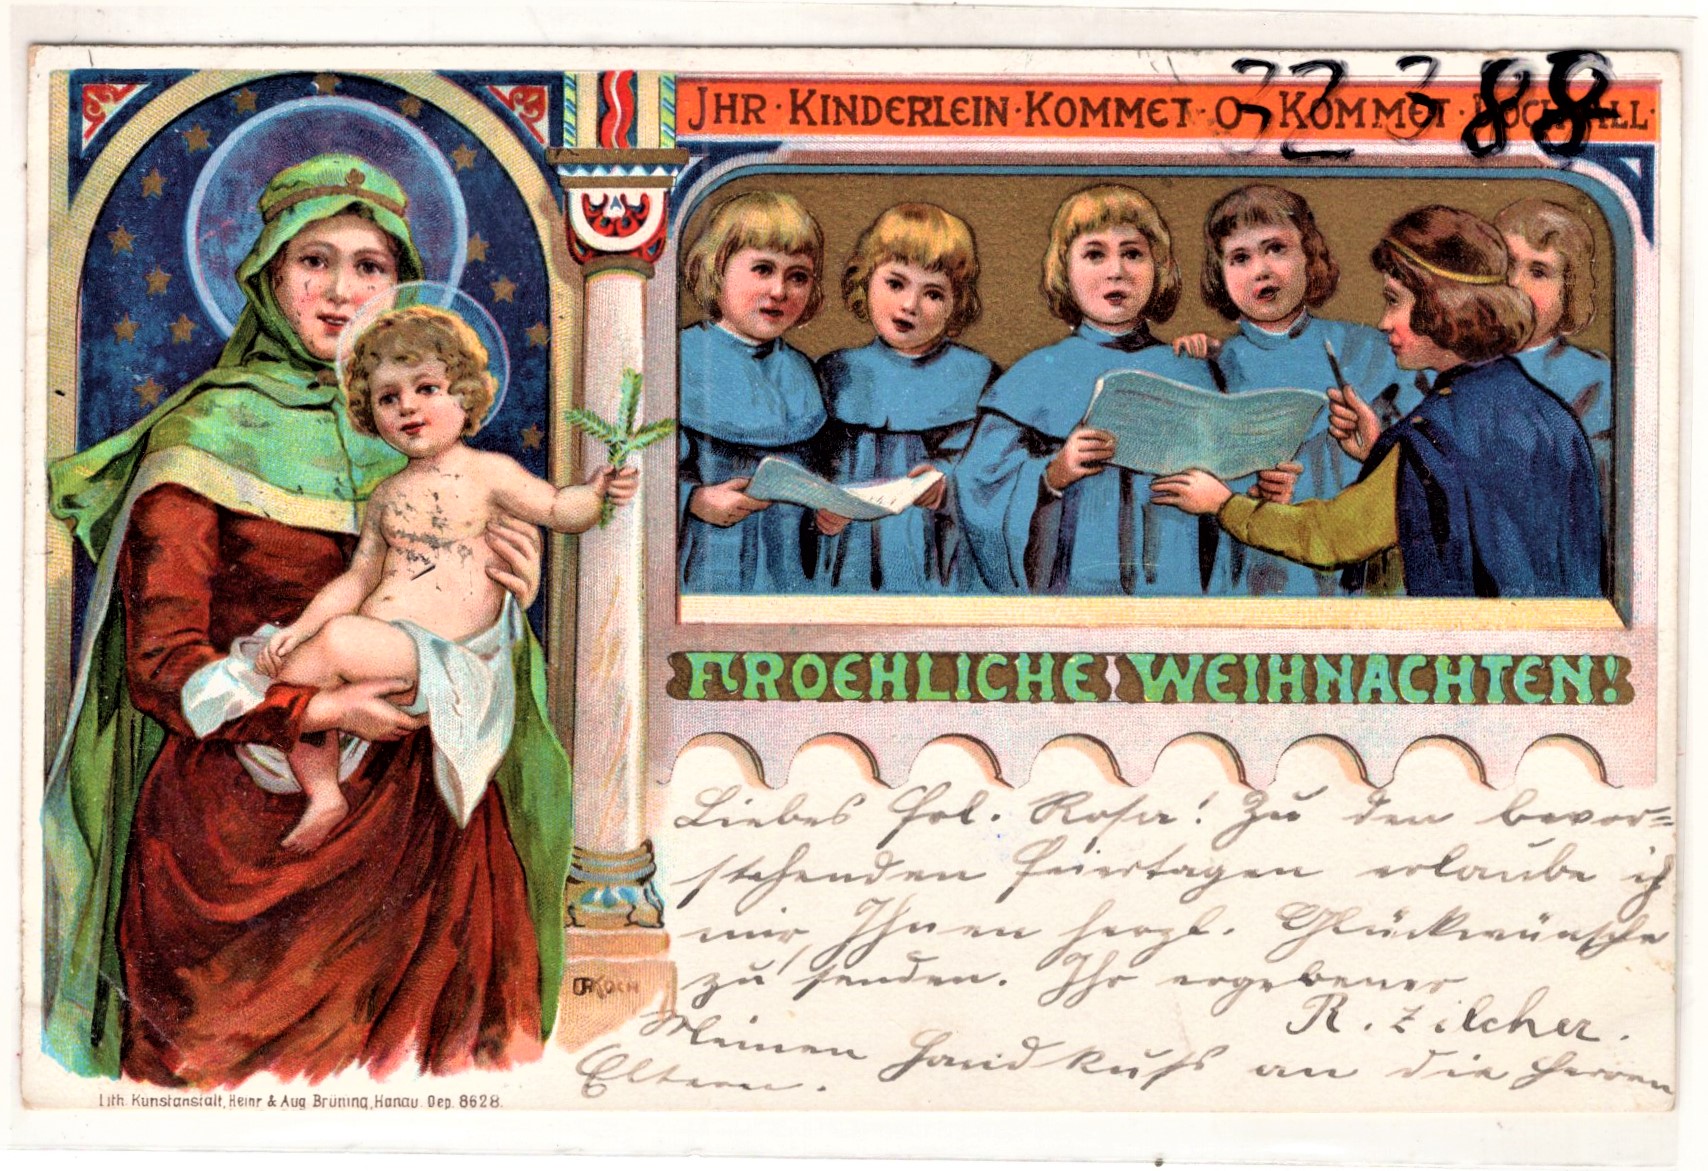 JHR · KINDERLEIN · KOMMET · O · KOMMET · DOCH · ALL ·
32 3 88
FROEHLICHE WEIHNACHTEN!
Liebes Frl. Rosa! Zu den bevor=
stehenden Feiertagen erlaube ich
mir, Ihnen herzl. Glückwünsche
zu senden. Ihr ergebener
R. Zilcher.
Meinen Handkuss an die Herren
Eltern.
KOCH
Lith. Kunstanstalt, Heinr & Aug Brüning, Hanau. Dep. 8628.